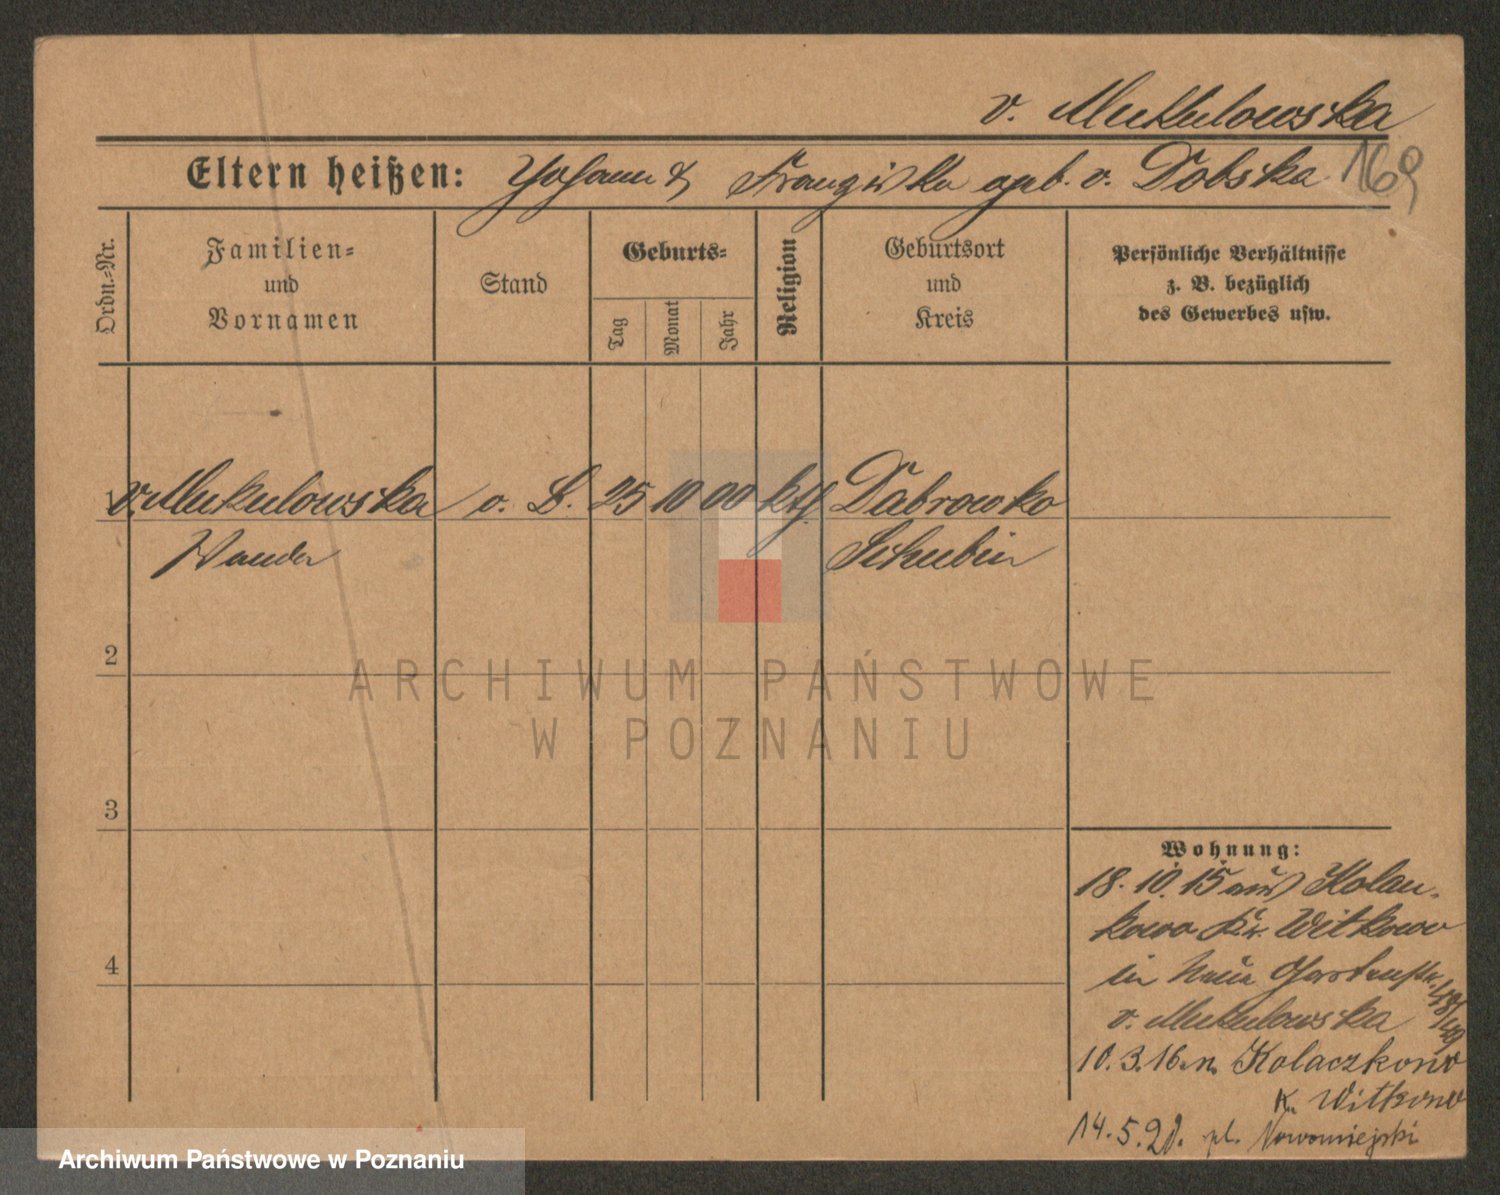 v. Mukulowska
Eltern heißen: Johann & Franziska geb. v. Dobska 169
Ordn.-Nr.
Familien-
und
Vornamen
Stand
Geburts-
Tag
Monat
Jahr
Religion
Geburtsort
und
Kreis
Persönliche Verhältnisse
z. B. bezüglich
des Gewerbes usw.
1 v. Mukulowska o. B. 25 10 00 kth. Dabrowko
Wanda Schubin
2
3
4
Wohnung:
18. 10. 15 aus Kolau-
kowo Kr. Witkowo
in neue Gartenstr.
v. Mukulowska
10. 3. 16. n. Kolaczkowo
Kr. Witkowo
14. 5. 20. pl. Nowomiejski
ARCHIWUM PAŃSTWOWE
W POZNANIU
Archiwum Państwowe w Poznaniu